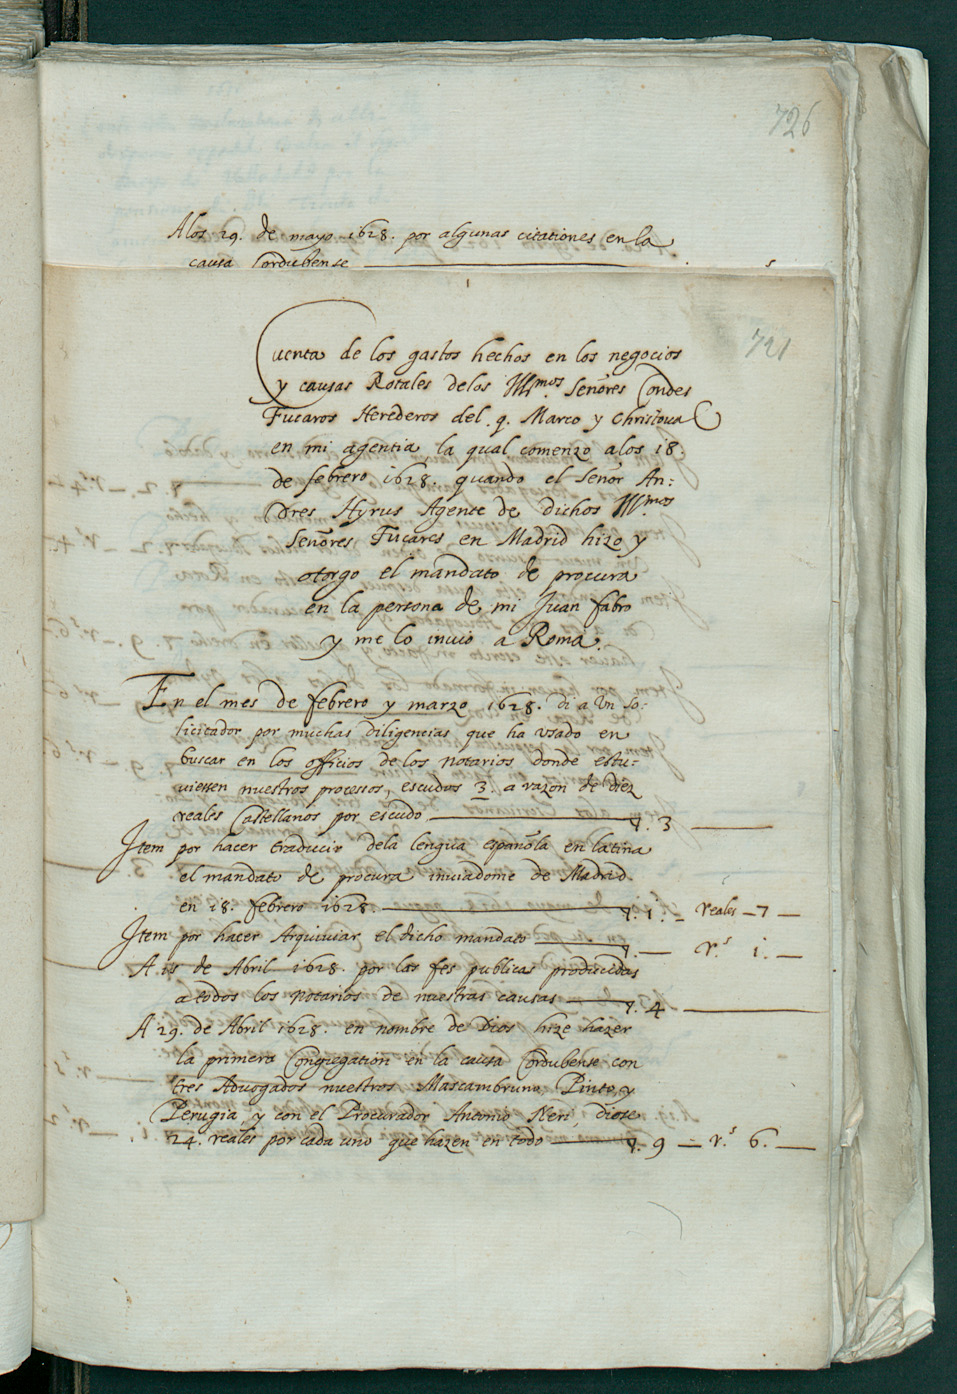 726
Alos 29. de mayo 1628. por algunas citationes en la
causa Cordubense
721
Cuenta de los gastos hechos en los negocios
y causas Rotales delos Illmos Señores Condes
Fucaros Herederos del. q. Marco y Christoual
en mi agentia, la qual comenzo alos 18.
de febrero 1628. quando el señor An:
dres Hyrus Agente de dichos Illmos
Señores Fucares en Madrid hizo y
otorgo el mandato de procura
en la persona de mi Juan fabro
y me lo inuio a Roma.
En el mes de febrero y marzo 1628. di a Un So:
licitador por muchas diligencias que ha usado en
buscar en los officios de los notarios donde estu:
uiessen nuestros processos, escudos 3. a razon de diez
reales Castellanos por escudo ∇. 3
Item por hacer traducir dela lengua española en latina
el mandato de procura inuiadome de Madrid
en 18. febrero 1628. ∇. 1. - reales - 7 -
Item por hacer Arquiuiar el dicho mandato ∇. - r.s 1. -
A 15 de Abril 1628. por las fes publicas producidas
a todos los notarios de nuestras causas ∇. 4
A 29. de Abril 1628. en nombre de Dios hize hazer
la primera Congregation en la causa Cordubense con
tres Aduogados nuestros Mascambruno, Pinto, y
Perugia, y con el Procurador Antonio Neri, diose
24. reales por cada uno que hazen en todo ∇. 9 - r.s 6. -